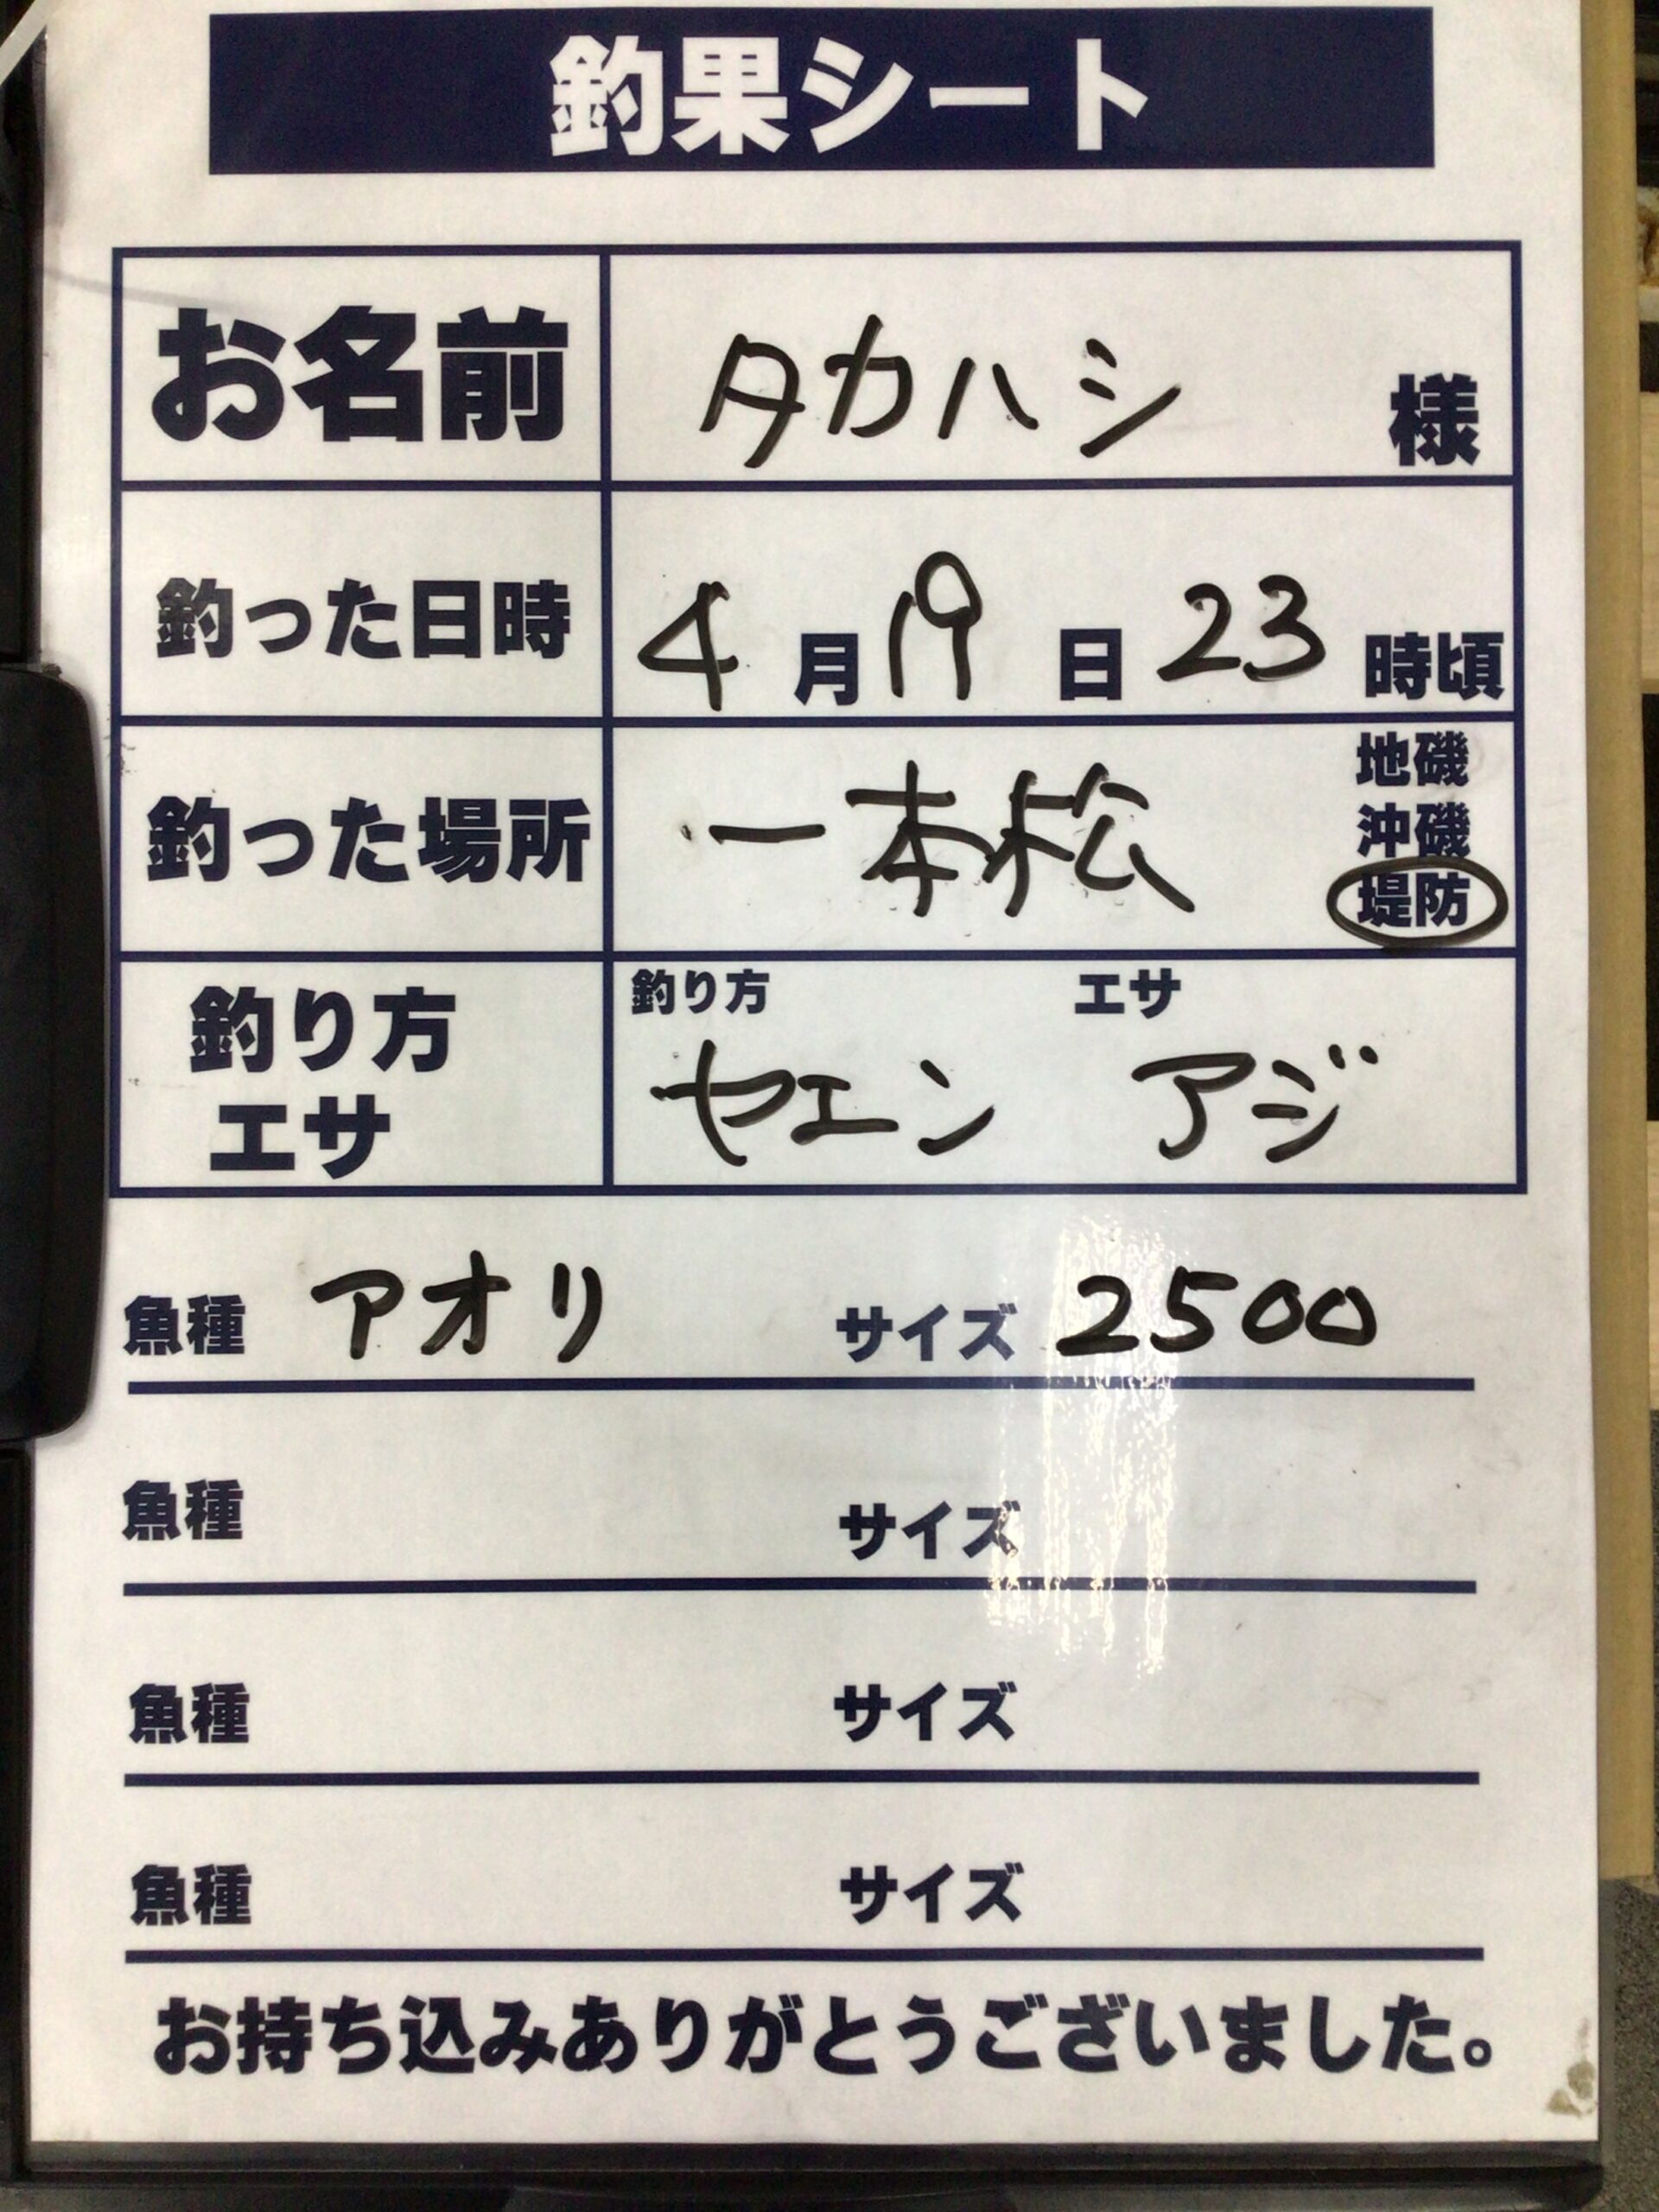 釣果シート
お名前 タカハシ 様
釣った日時 4月19日23時頃
釣った場所 一本松 地磯 沖磯 堤防
釣り方 エサ 釣り方 ヤエン エサ アジ
魚種 アオリ サイズ 2500
魚種 サイズ
魚種 サイズ
魚種 サイズ
お持ち込みありがとうございました。